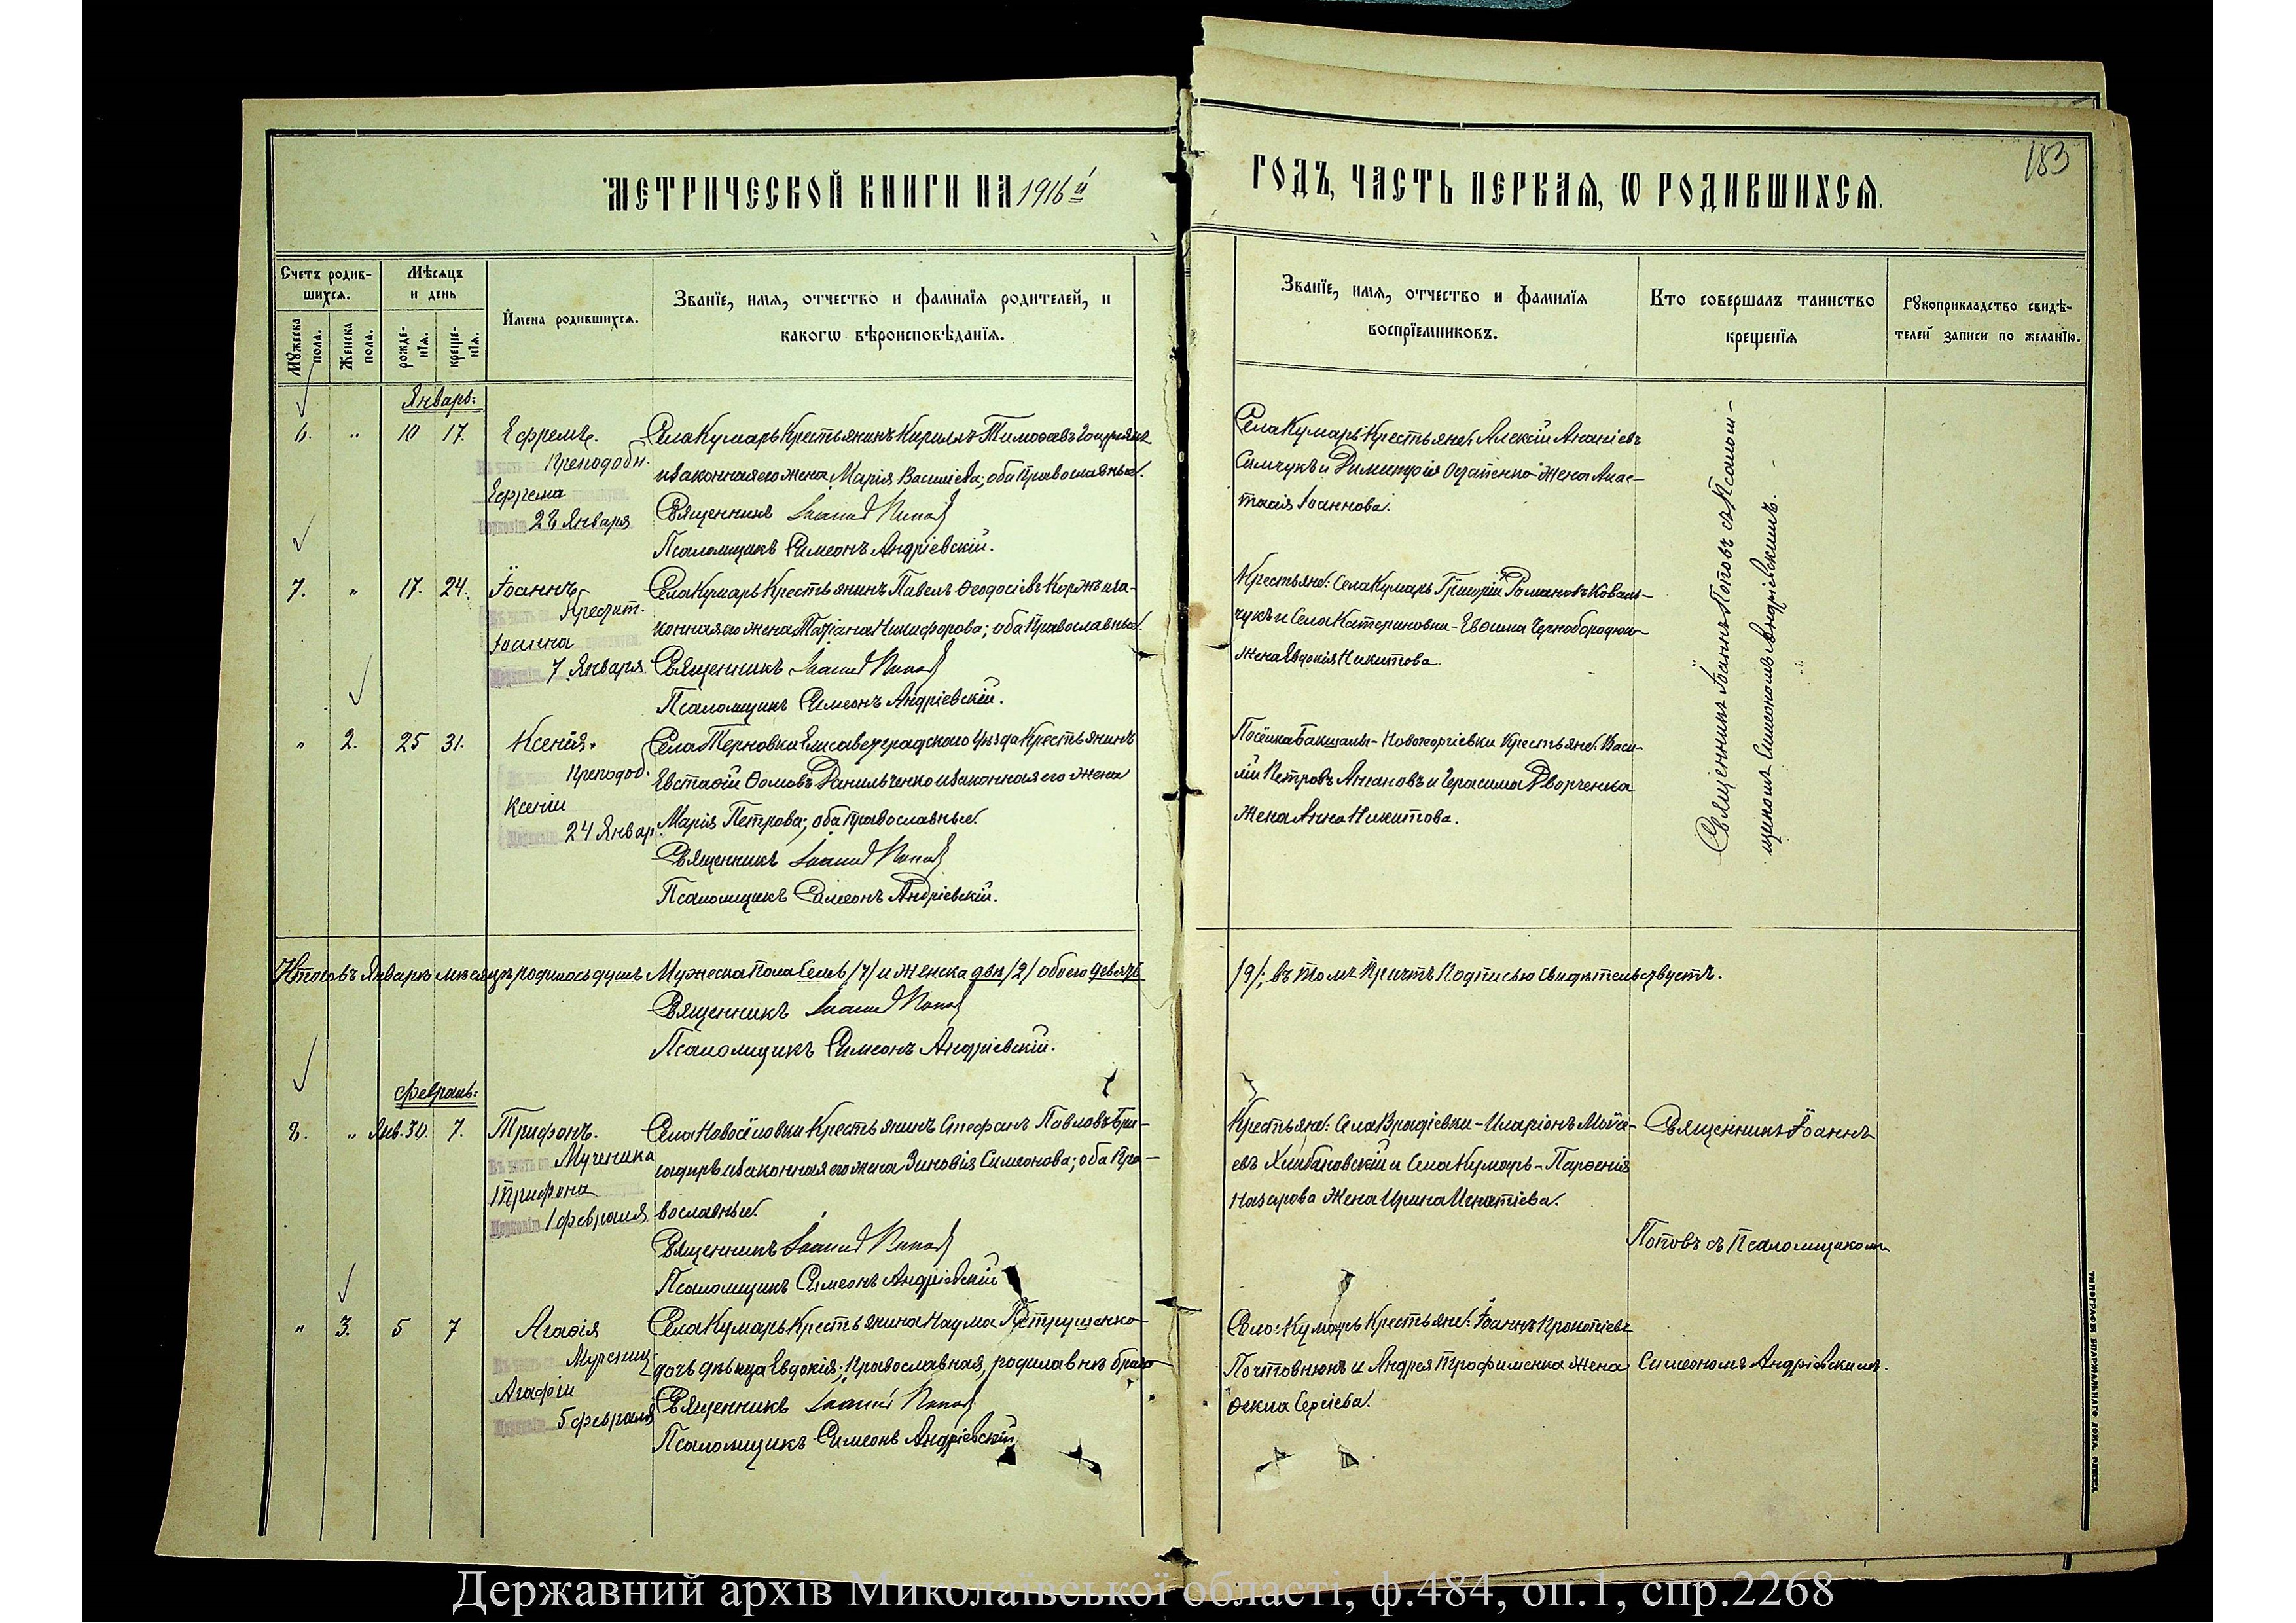 183
МЕТРИЧЕСКОЙ КНИГИ НА 1916й
ГОДЪ, ЧАСТЬ ПЕРВАЯ, Ѡ РОДИВШИХСЯ.
Счетъ родив-
шихся.
Мѣсяцъ
и день
Мужеска
пола.
Женска
пола.
рожде-
нія.
креще-
нія.
Имена родившихся.
Званіе, имя, отчество и фамилія родителей, и
какогѡ вѣроисповѣданія.
Званіе, имя, отчество и фамилія
воспріемниковъ.
Кто совершалъ таинство
крещенія
Рукоприкладство свидѣ-
телей записи по желанію.
Январь:
6. " 10 17. Ефремъ.
Преподобн.
Ефрема
28 Января
Села Кумарь Крестьянинъ Кириллъ Тимоѳеевъ
и законная его жена Марія Васильева; оба Православные.
Священникъ Іоаннъ Поповъ
Псаломщикъ Симеонъ Андріевскій.
Села Кумарь Крестьяне: Алексій Ананіевъ
Симчукъ и Димитрія Остапенко жена Анас-
тасія Іоаннова.
7. " 17. 24. Іоаннъ.
Крестит.
Іоанна
7 Января
Села Кумарь Крестьянинъ Павелъ Ѳеодосіевъ Коржъ и за-
конная его жена Татіана Никифорова; оба Православные.
Священникъ Іоаннъ Поповъ
Псаломщикъ Симеонъ Андріевскій.
Крестьяне: Села Кумарь Григорій Романовъ Коваль-
чукъ и Села Катериновки - Евѳима Чернобородюка
жена Евдокія Никитова.
" 2. 25 31. Ксенія.
Преподоб.
Ксеніи
24 Январ.
Села Терновки Елисаветградскаго Уѣзда Крестьянинъ
Евстаѳій Ѳомовъ Данильченко и законная его жена
Марія Петрова; оба Православные.
Священникъ Іоаннъ Поповъ
Псаломщикъ Симеонъ Андріевскій.
Посёлка Бакшалы - Новогеоргіевки Крестьяне: Васи-
лій Петровъ и Герасима Дворченка
жена Анна Никитова.
Священникъ Іоаннъ Поповъ съ Псалом-
щикомъ Симеономъ Андріевскимъ.
Итого въ Январѣ мѣсяцѣ родилось душъ Мужеска пола Семь /7/ и женска двѣ /2/ обоего девять
/9/; въ томъ Причтъ Подписью Свидѣтельствуетъ.
Священникъ Іоаннъ Поповъ
Псаломщикъ Симеонъ Андріевскій.
Февраль:
8. " Янв. 30. 7. Трифонъ.
Мученика
Трифона
1 февраля
Села Новосёловки Крестьянинъ Стефанъ Павловъ Бри-
гадиръ и законная его жена Зиновія Симеонова; оба Пра-
вославные.
Священникъ Іоаннъ Поповъ
Псаломщикъ Симеонъ Андріевскій
Крестьяне: Села Врадіевки - Иларіонъ Моисе-
евъ и Села Кумарь - Парѳенія
Назарова жена Ирина Игнатіева.
Священникъ Іоаннъ
Поповъ съ Псаломщикомъ
Симеономъ Андріевскимъ.
" 3. 5 7 Агаѳія
Мучениц
Агафіи
5 февраля
Села Кумарь Крестьянина Наума Петрушенко
дочь дѣвица Евдокія; Православная, родила внѣ брака
Священникъ Іоаннъ Поповъ
Псаломщикъ Симеонъ Андріевскій
Села Кумарь Крестьяне: Іоаннъ Прокопіевъ
Почтовнюкъ и Андрея Трофименка жена
Ѳекла Сергіева.
ТИПОГРАФІЯ ЕПАРХІАЛЬНАГО ДОМА. ОДЕССА
Державний архів Миколаївської області, ф.484, оп.1, спр.2268